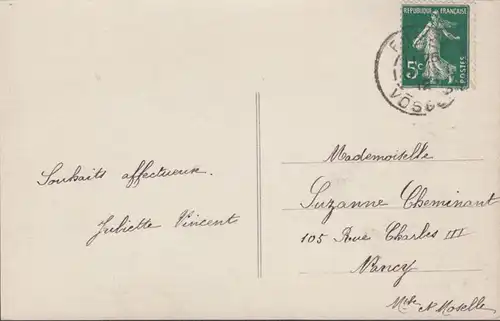 REPUBLIQUE FRANÇAISE
5c
POSTES
VOSGES
Mademoiselle
Suzanne Cheminant
105 Rue Charles III
Nancy
Mthe et Moselle
Souhaits affectueux.
Juliette Vincent